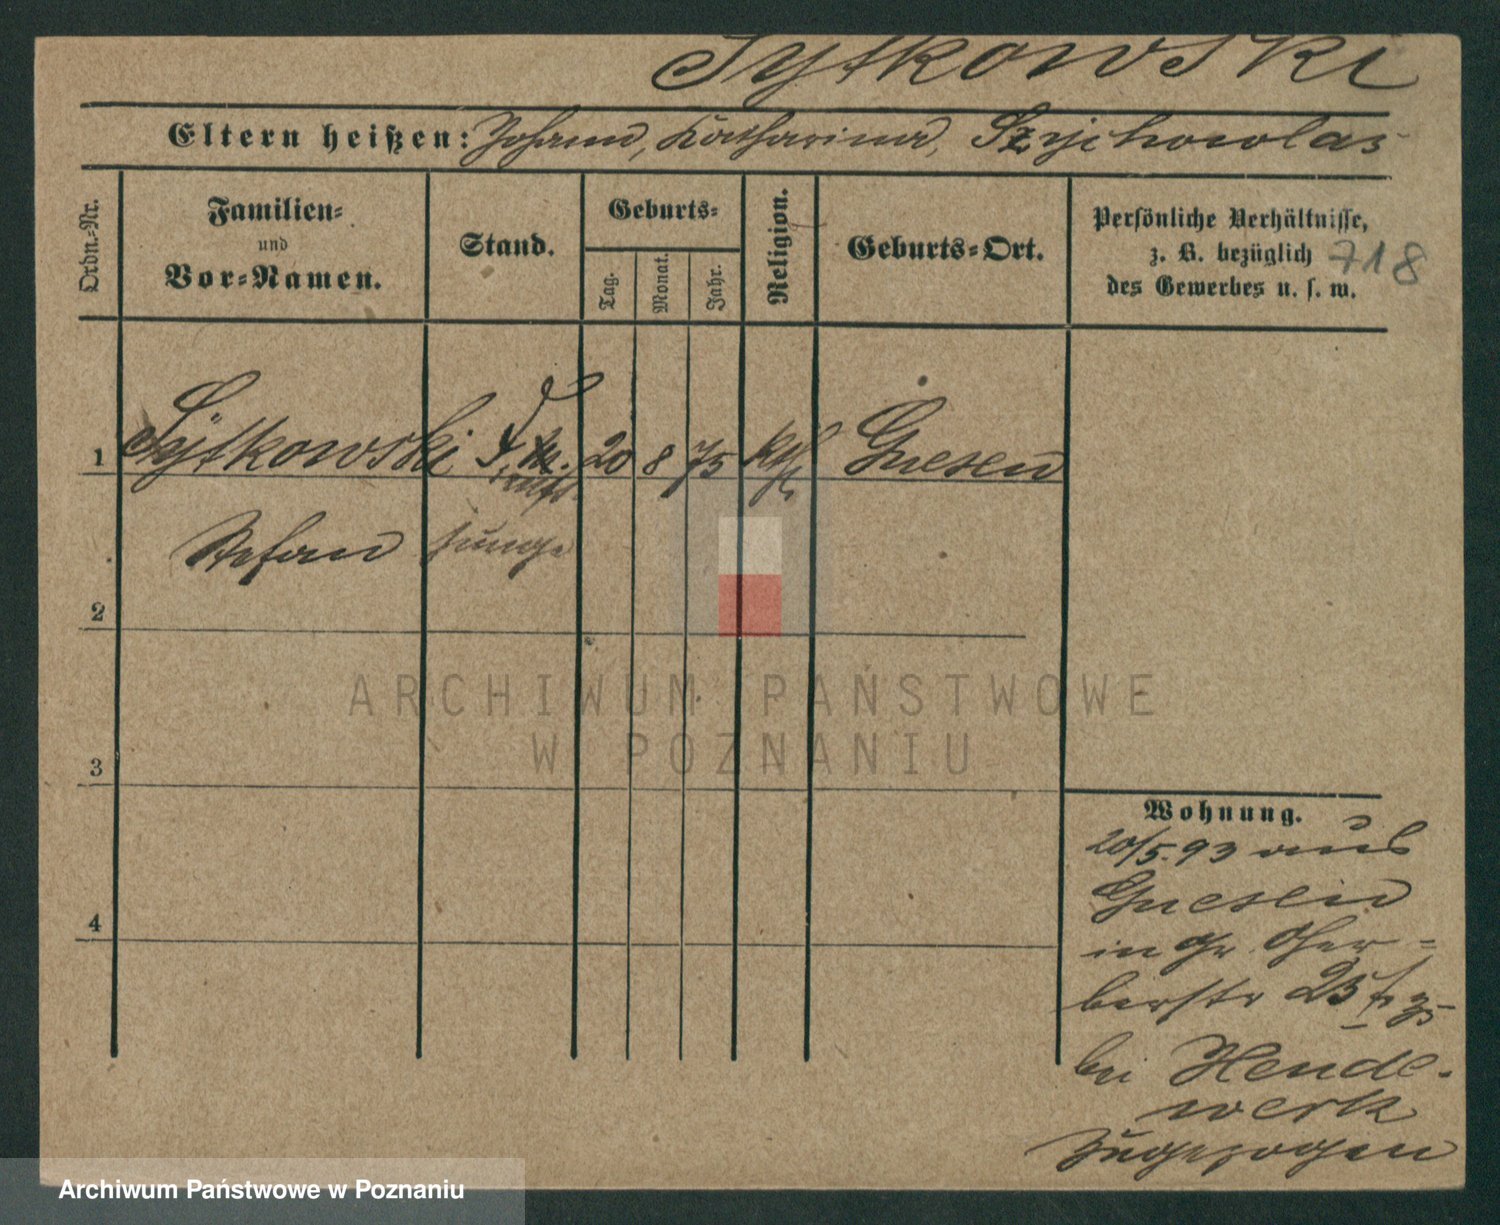 Sytkowski
Eltern heißen: Johann, Katharina,
Ordn.-Nr.
Familien-
und
Vor-Namen.
Stand.
Geburts-
Tag.
Monat.
Jahr.
Religion.
Geburts-Ort.
Persönliche Verhältnisse,
z. B. bezüglich
des Gewerbes u. s. w.
718
1 Sytkowski 20 8 75 kth. Gnesen
Stefan junge
2
3
4
Wohnung.
20/5.93 aus
Gnesen
in Gr. Ger-
berstr 25
bei Hende-
werk
zugezogen
ARCHIWUM PAŃSTWOWE
W POZNANIU
Archiwum Państwowe w Poznaniu